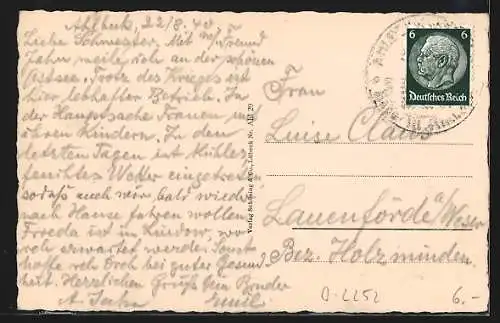 Ahlbeck, 22/8.40
Liebe Schwester, Mit m/Freund
Jahn weile ich an der schönen
Ostsee. Trotz des Krieges ist
hier lebhafter Betrieb. In
der Hauptsache Frauen mit
ihren Kindern. In den
letzten Tagen ist kühles
feuchtes Wetter eingetreten
sodaß auch wir bald wieder
nach Hause fahren wollen
Frieda ist in Lindow, wo
ich erwartet werde. Sonst
hoffe ich Dich bei guter Gesund
heit. Herzlichen Gruß Dein Bruder
A. Jahn Emil
Verlag Schöning & Co., Lübeck Nr. Ahl 29
6 6
Deutsches Reich
Frau
Luise Claus
Lauenförde a/Weser
Bez. Holzminden
6.-